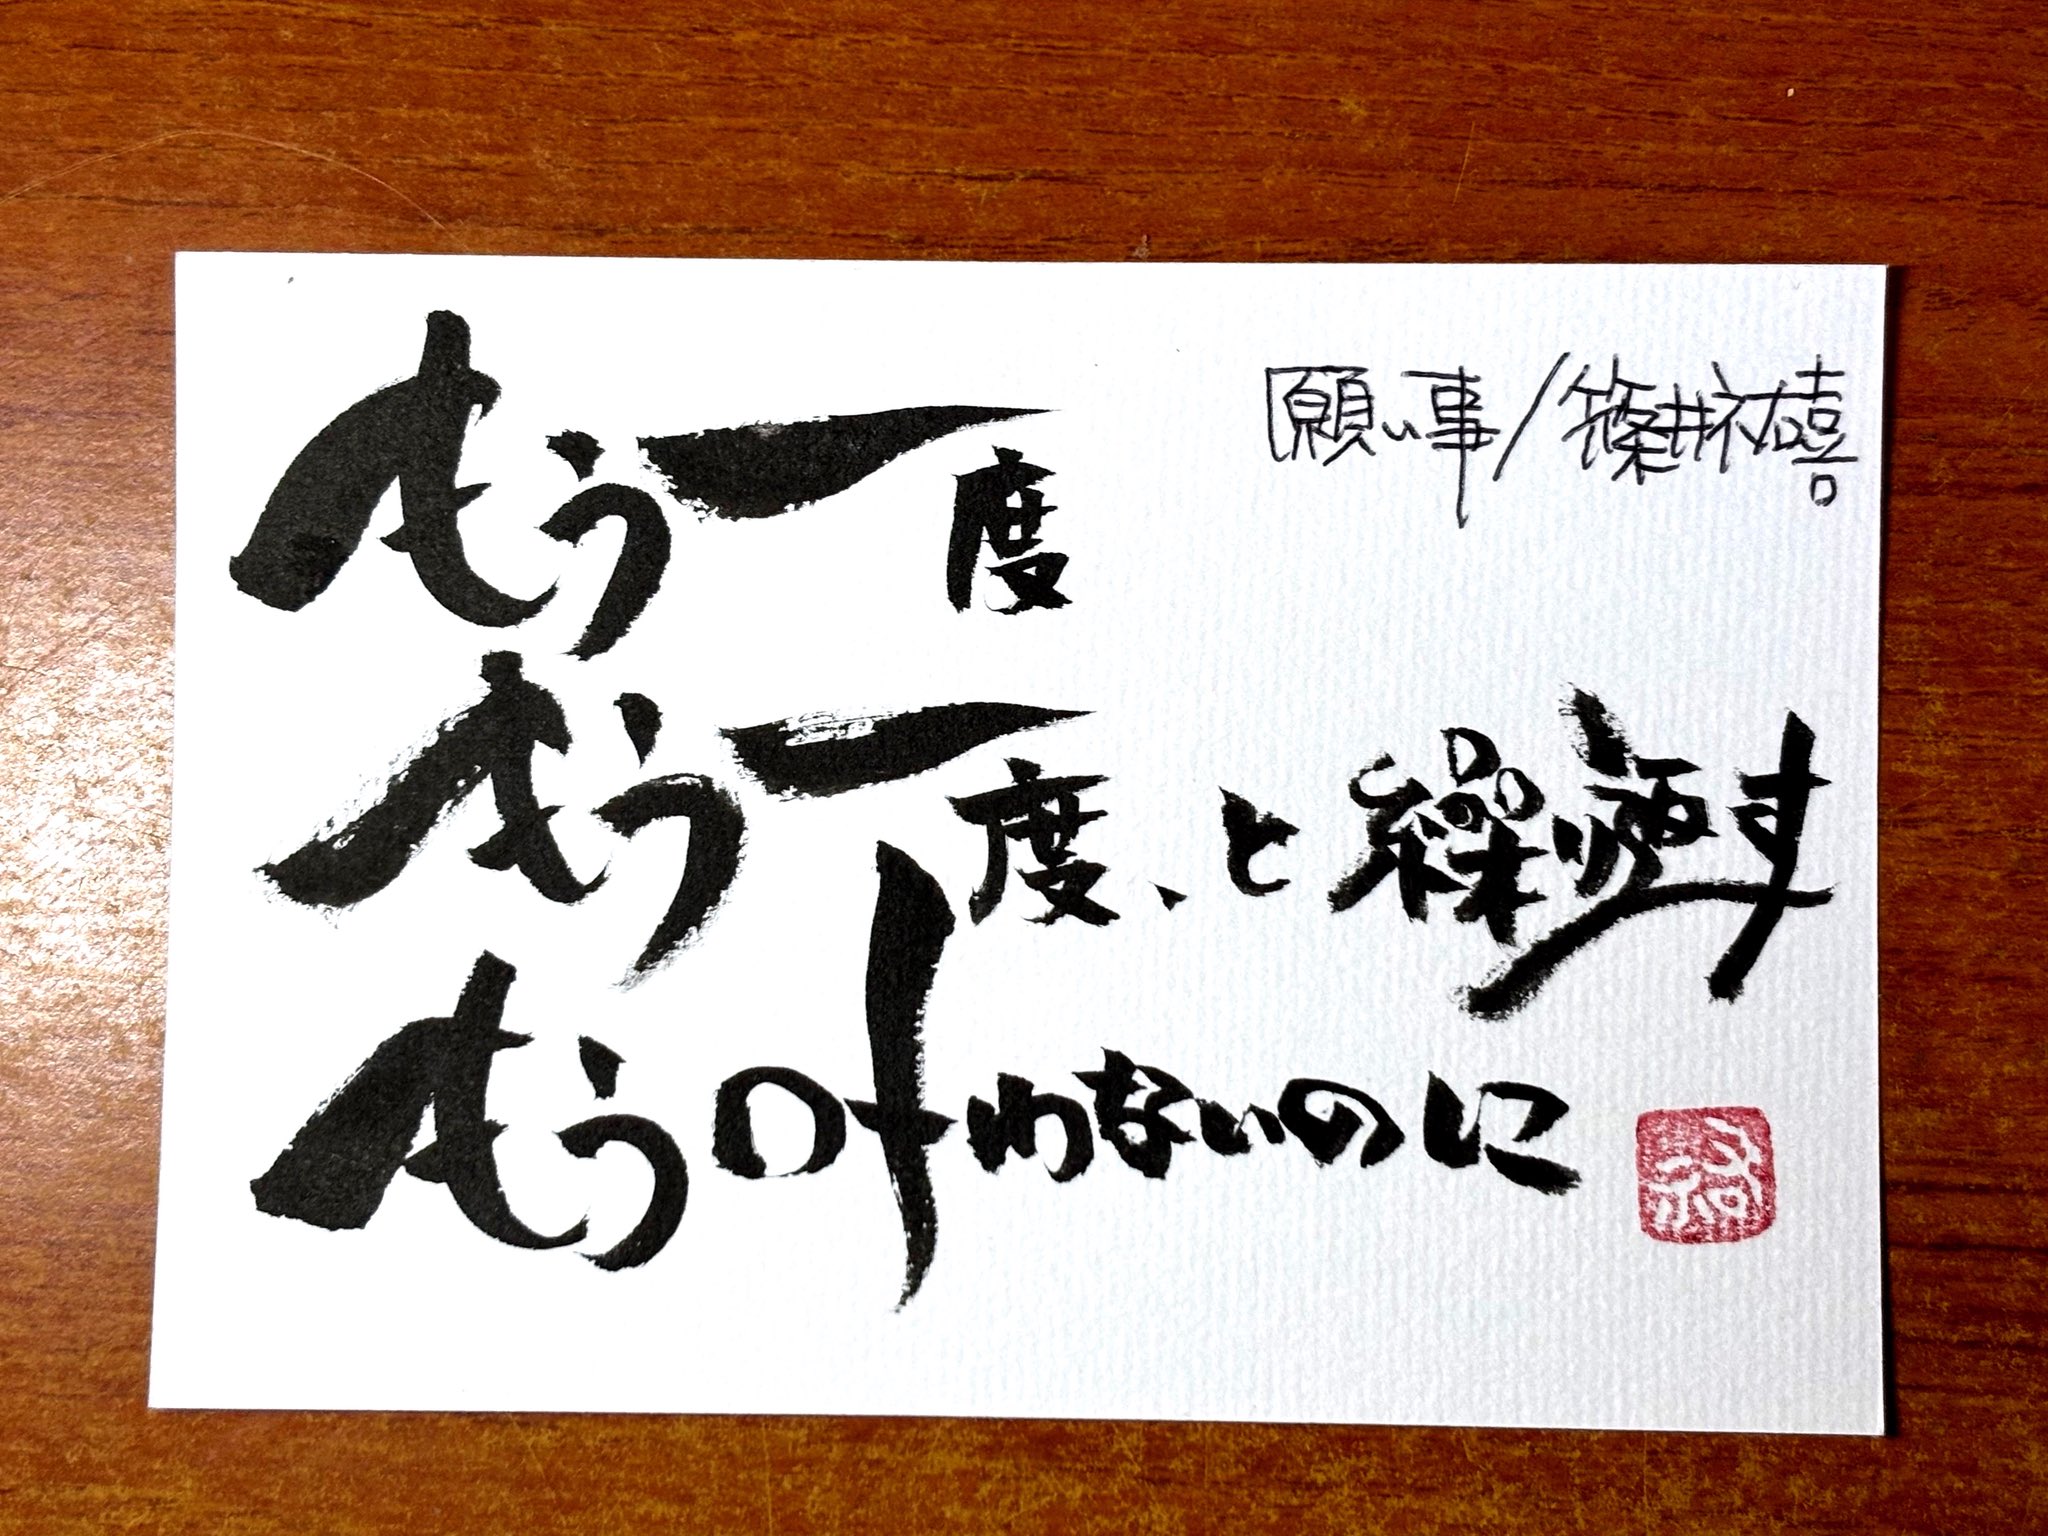 願い事/篠井祐喜
もう一度
もう一度、と繰り返す
もう叶わないのに
祐